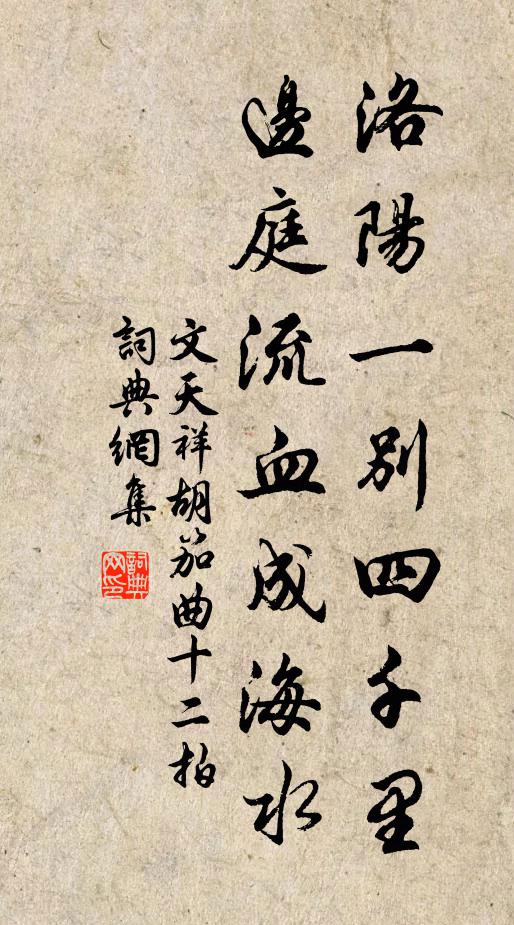 洛陽一別四千里
邊庭流血成海水
文天祥胡笳曲十二拍
詞典網集
詞典网印